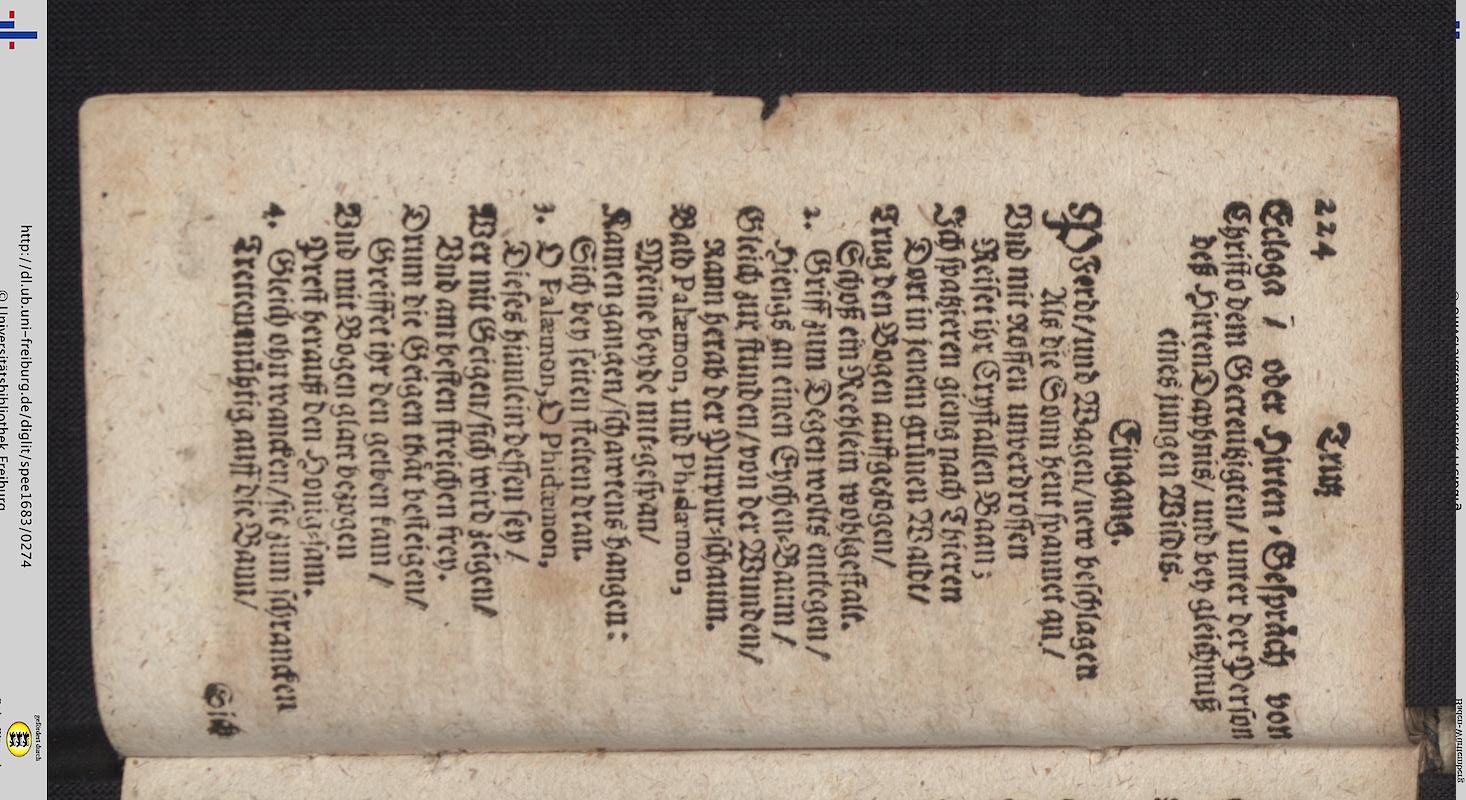 224
Trutz
Ecloga / oder Hirten-Gespräch von
Christo dem Gecreutzigten/ unter der Person
deß Hirten Daphnis/ und bey gleichnuß
eines jungen Wildes.
Eingang.
Pferdt/und Wagen/new beschlagen
Als die Sonn heut spannet an/
Vnd mit Rossen unverdrossen
Reiset ihr Crystallen Baan;
Ich spatzieren gieng nach Thieren
Dort in jenem grünen Waldt/
Trug den Bogen auffgezogen/
Schoß ein Reehlein wohlgestalt.
2. Griff zum Degen wolts entlegen/
Hiengs an einen Eychen-Baum /
Gleich zur stunden/von der Wunden/
Rann herab der Purpur-schaum.
Bald Palæmon, und Phidæmon,
Meine beyde mit-gespan/
Kamen gangen/scharrens hangen:
Sich bey seiten stelten dran.
3. O Palæmon, O Phidæmon,
Dieses hünnlein dessen sey /
Wer mit Geigen/sich wird zeigen/
Vnd am besten streichen frey.
Drum die Geigen thät besteigen/
Greiffet ihr den gelben kam /
Vnd mit Bogen glatt bezogen
Prest herauß den Honig-sam.
4. Gleich ohn wancken/sie zum schrancken
Tretten muhtig auff die Baan/
Sich
http://dl.ub.uni-freiburg.de/diglit/spee1683/0274
© Universitätsbibliothek Freiburg
gefördert durch